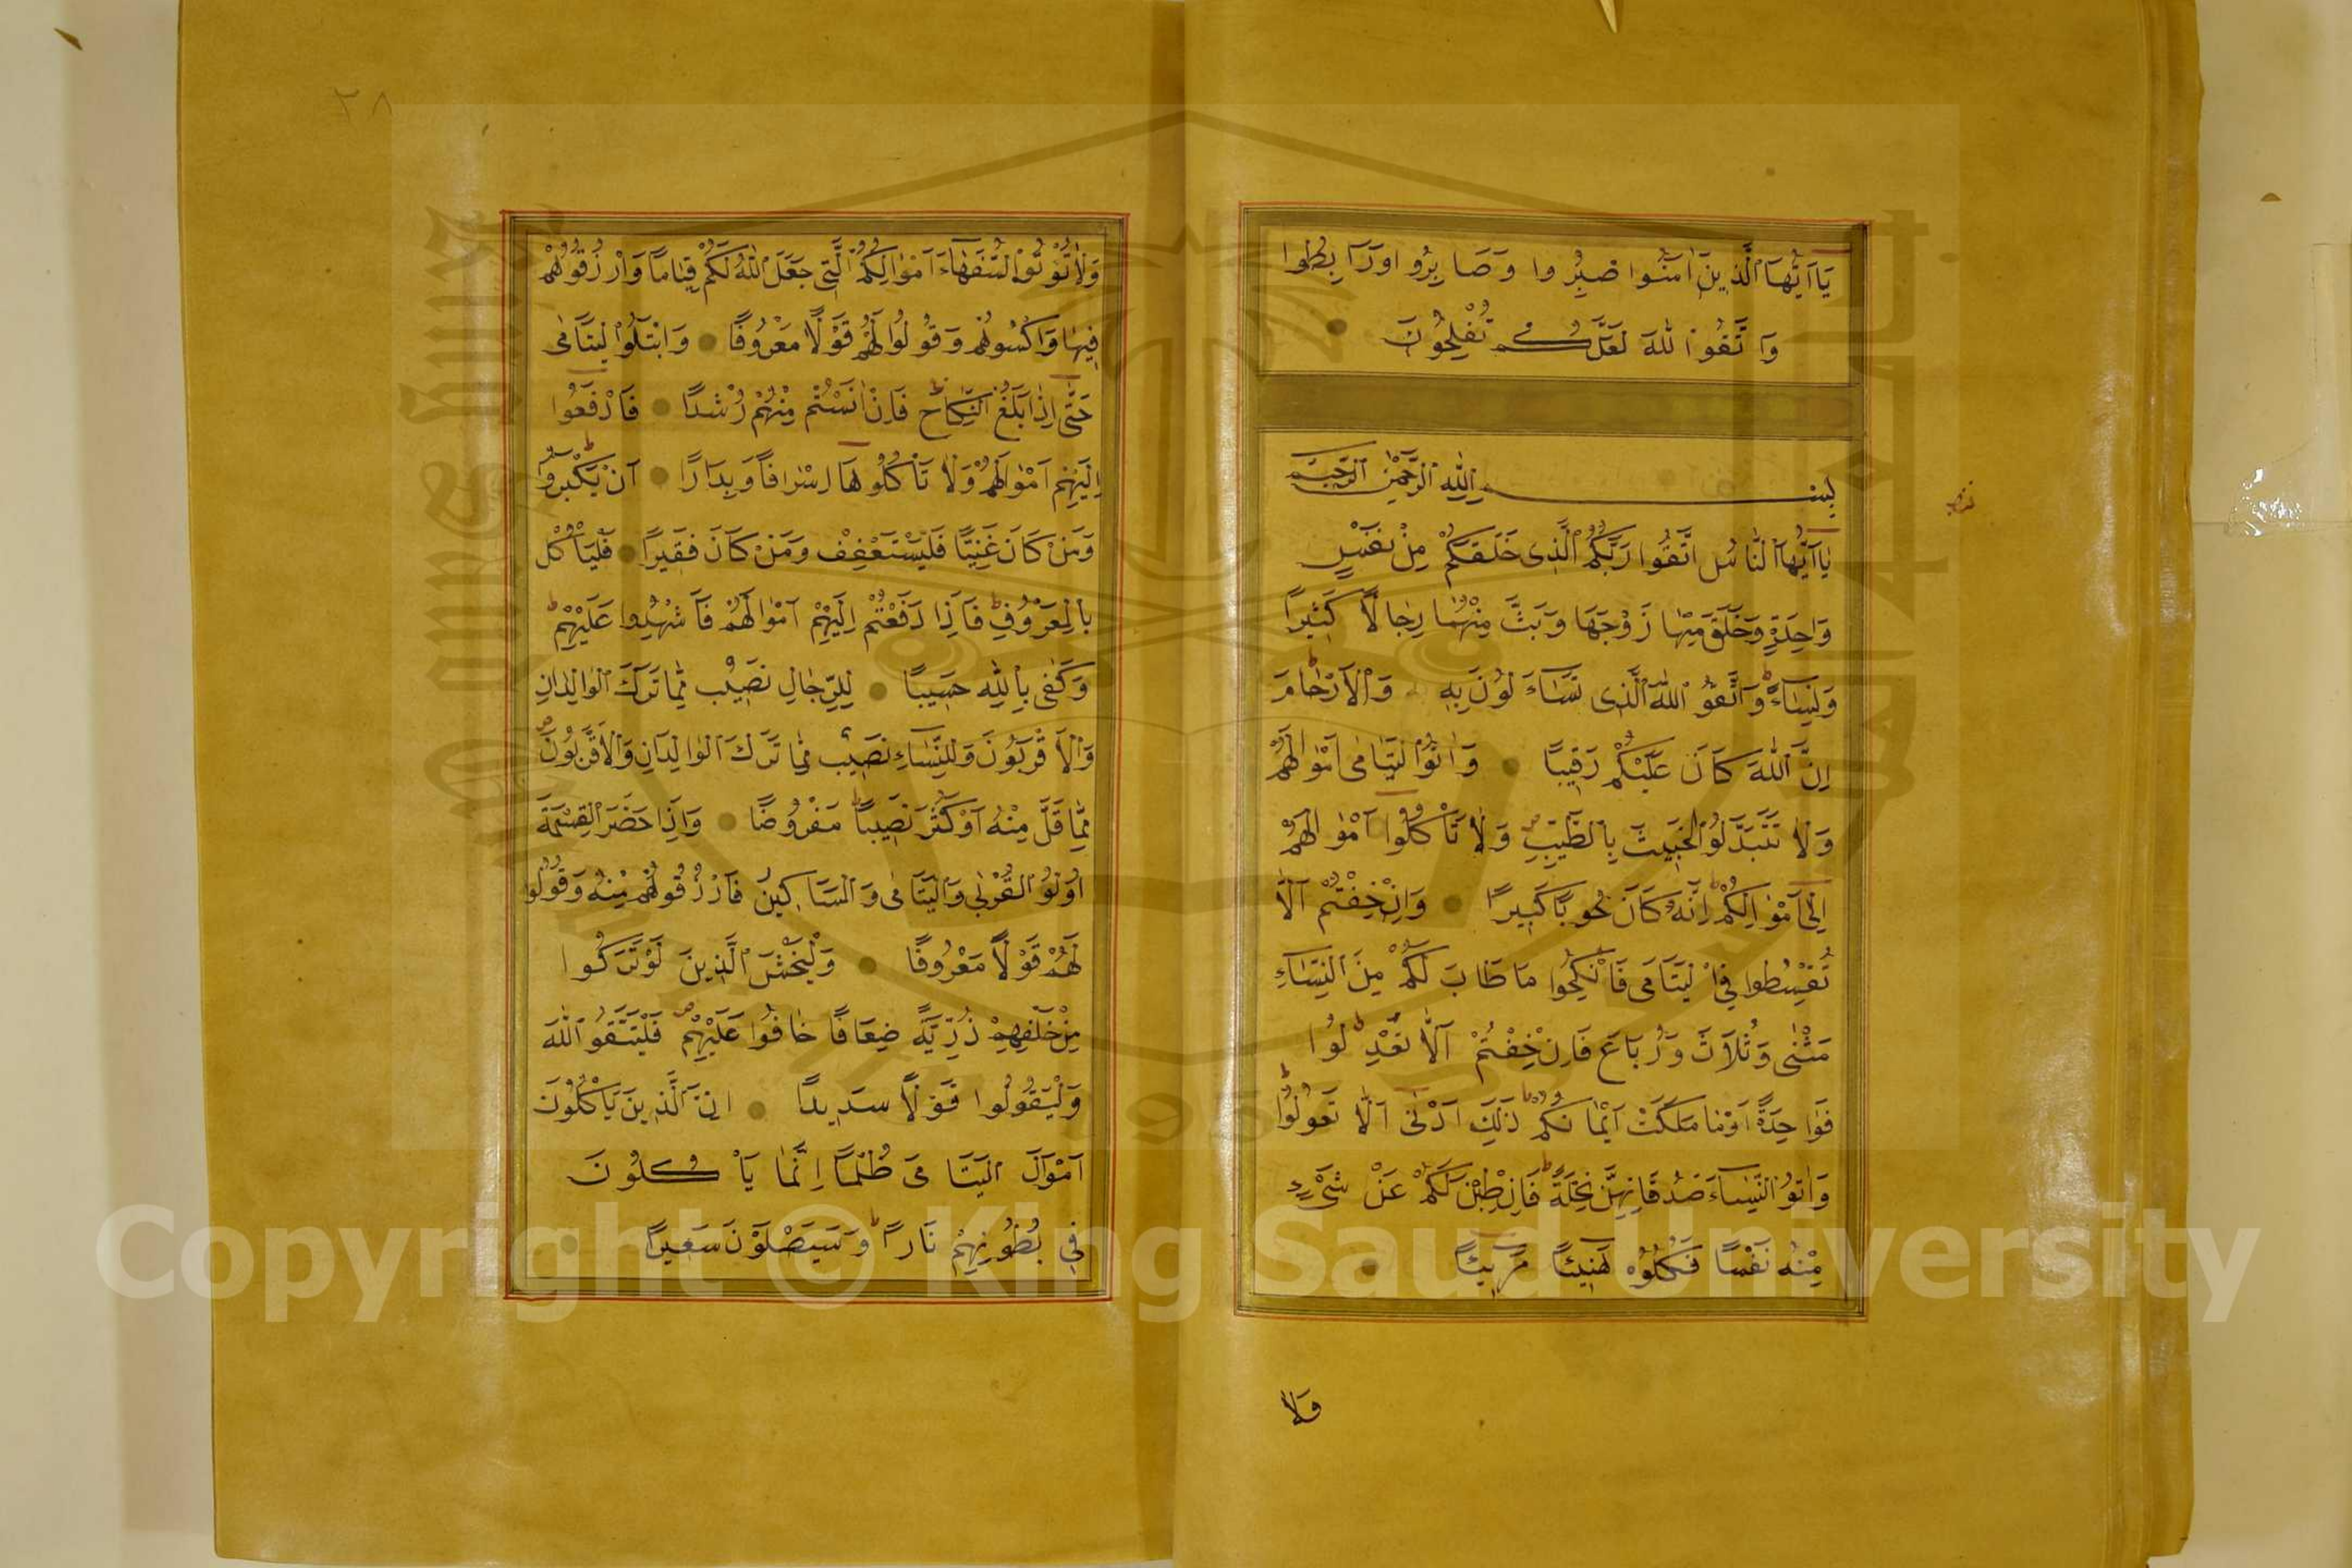 يَا اَيُّهَا الَّذِينَ اٰمَنُوا اصْبِرُوا وَصَابِرُوا وَرَابِطُوا
وَاتَّقُوا اللّٰهَ لَعَلَّكُمْ تُفْلِحُونَ
بِسْمِ اللّٰهِ الرَّحْمٰنِ الرَّحِيمِ
يَا اَيُّهَا النَّاسُ اتَّقُوا رَبَّكُمُ الَّذِى خَلَقَكُمْ مِنْ نَفْسٍ
وَاحِدَةٍ وَخَلَقَ مِنْهَا زَوْجَهَا وَبَثَّ مِنْهُمَا رِجَالًا كَثِيرًا
وَنِسَاءً وَاتَّقُوا اللّٰهَ الَّذِى تَسَاءَلُونَ بِهِ وَالْاَرْحَامَ
اِنَّ اللّٰهَ كَانَ عَلَيْكُمْ رَقِيبًا وَاٰتُوا الْيَتَامٰى اَمْوَالَهُمْ
وَلَا تَتَبَدَّلُوا الْخَبِيثَ بِالطَّيِّبِ وَلَا تَأْكُلُوا اَمْوَالَهُمْ
اِلٰى اَمْوَالِكُمْ اِنَّهُ كَانَ حُوبًا كَبِيرًا وَاِنْ خِفْتُمْ اَلَّا
تُقْسِطُوا فِى الْيَتَامٰى فَانْكِحُوا مَا طَابَ لَكُمْ مِنَ النِّسَاءِ
مَثْنٰى وَثُلَاثَ وَرُبَاعَ فَاِنْ خِفْتُمْ اَلَّا تَعْدِلُوا
فَوَاحِدَةً اَوْ مَا مَلَكَتْ اَيْمَانُكُمْ ذٰلِكَ اَدْنٰى اَلَّا تَعُولُوا
وَاٰتُوا النِّسَاءَ صَدُقَاتِهِنَّ نِحْلَةً فَاِنْ طِبْنَ لَكُمْ عَنْ شَىْءٍ
مِنْهُ نَفْسًا فَكُلُوهُ هَنِيئًا مَرِيئًا
وَلَا
٣٨
وَلَا تُؤْتُوا السُّفَهَاءَ اَمْوَالَكُمُ الَّتِى جَعَلَ اللّٰهُ لَكُمْ قِيَامًا وَارْزُقُوهُمْ
فِيهَا وَاكْسُوهُمْ وَقُولُوا لَهُمْ قَوْلًا مَعْرُوفًا وَابْتَلُوا الْيَتَامٰى
حَتّٰى اِذَا بَلَغُوا النِّكَاحَ فَاِنْ اٰنَسْتُمْ مِنْهُمْ رُشْدًا فَادْفَعُوا
اِلَيْهِمْ اَمْوَالَهُمْ وَلَا تَأْكُلُوهَا اِسْرَافًا وَبِدَارًا اَنْ يَكْبَرُوا
وَمَنْ كَانَ غَنِيًّا فَلْيَسْتَعْفِفْ وَمَنْ كَانَ فَقِيرًا فَلْيَأْكُلْ
بِالْمَعْرُوفِ فَاِذَا دَفَعْتُمْ اِلَيْهِمْ اَمْوَالَهُمْ فَاَشْهِدُوا عَلَيْهِمْ
وَكَفٰى بِاللّٰهِ حَسِيبًا لِلرِّجَالِ نَصِيبٌ مِمَّا تَرَكَ الْوَالِدَانِ
وَالْاَقْرَبُونَ وَلِلنِّسَاءِ نَصِيبٌ مِمَّا تَرَكَ الْوَالِدَانِ وَالْاَقْرَبُونَ
مِمَّا قَلَّ مِنْهُ اَوْ كَثُرَ نَصِيبًا مَفْرُوضًا وَاِذَا حَضَرَ الْقِسْمَةَ
اُولُوا الْقُرْبٰى وَالْيَتَامٰى وَالْمَسَاكِينُ فَارْزُقُوهُمْ مِنْهُ وَقُولُوا
لَهُمْ قَوْلًا مَعْرُوفًا وَلْيَخْشَ الَّذِينَ لَوْ تَرَكُوا
مِنْ خَلْفِهِمْ ذُرِّيَّةً ضِعَافًا خَافُوا عَلَيْهِمْ فَلْيَتَّقُوا اللّٰهَ
وَلْيَقُولُوا قَوْلًا سَدِيدًا اِنَّ الَّذِينَ يَأْكُلُونَ
اَمْوَالَ الْيَتَامٰى ظُلْمًا اِنَّمَا يَأْكُلُونَ
فِى بُطُونِهِمْ نَارًا وَسَيَصْلَوْنَ سَعِيرًا
Copyright © King Saud University